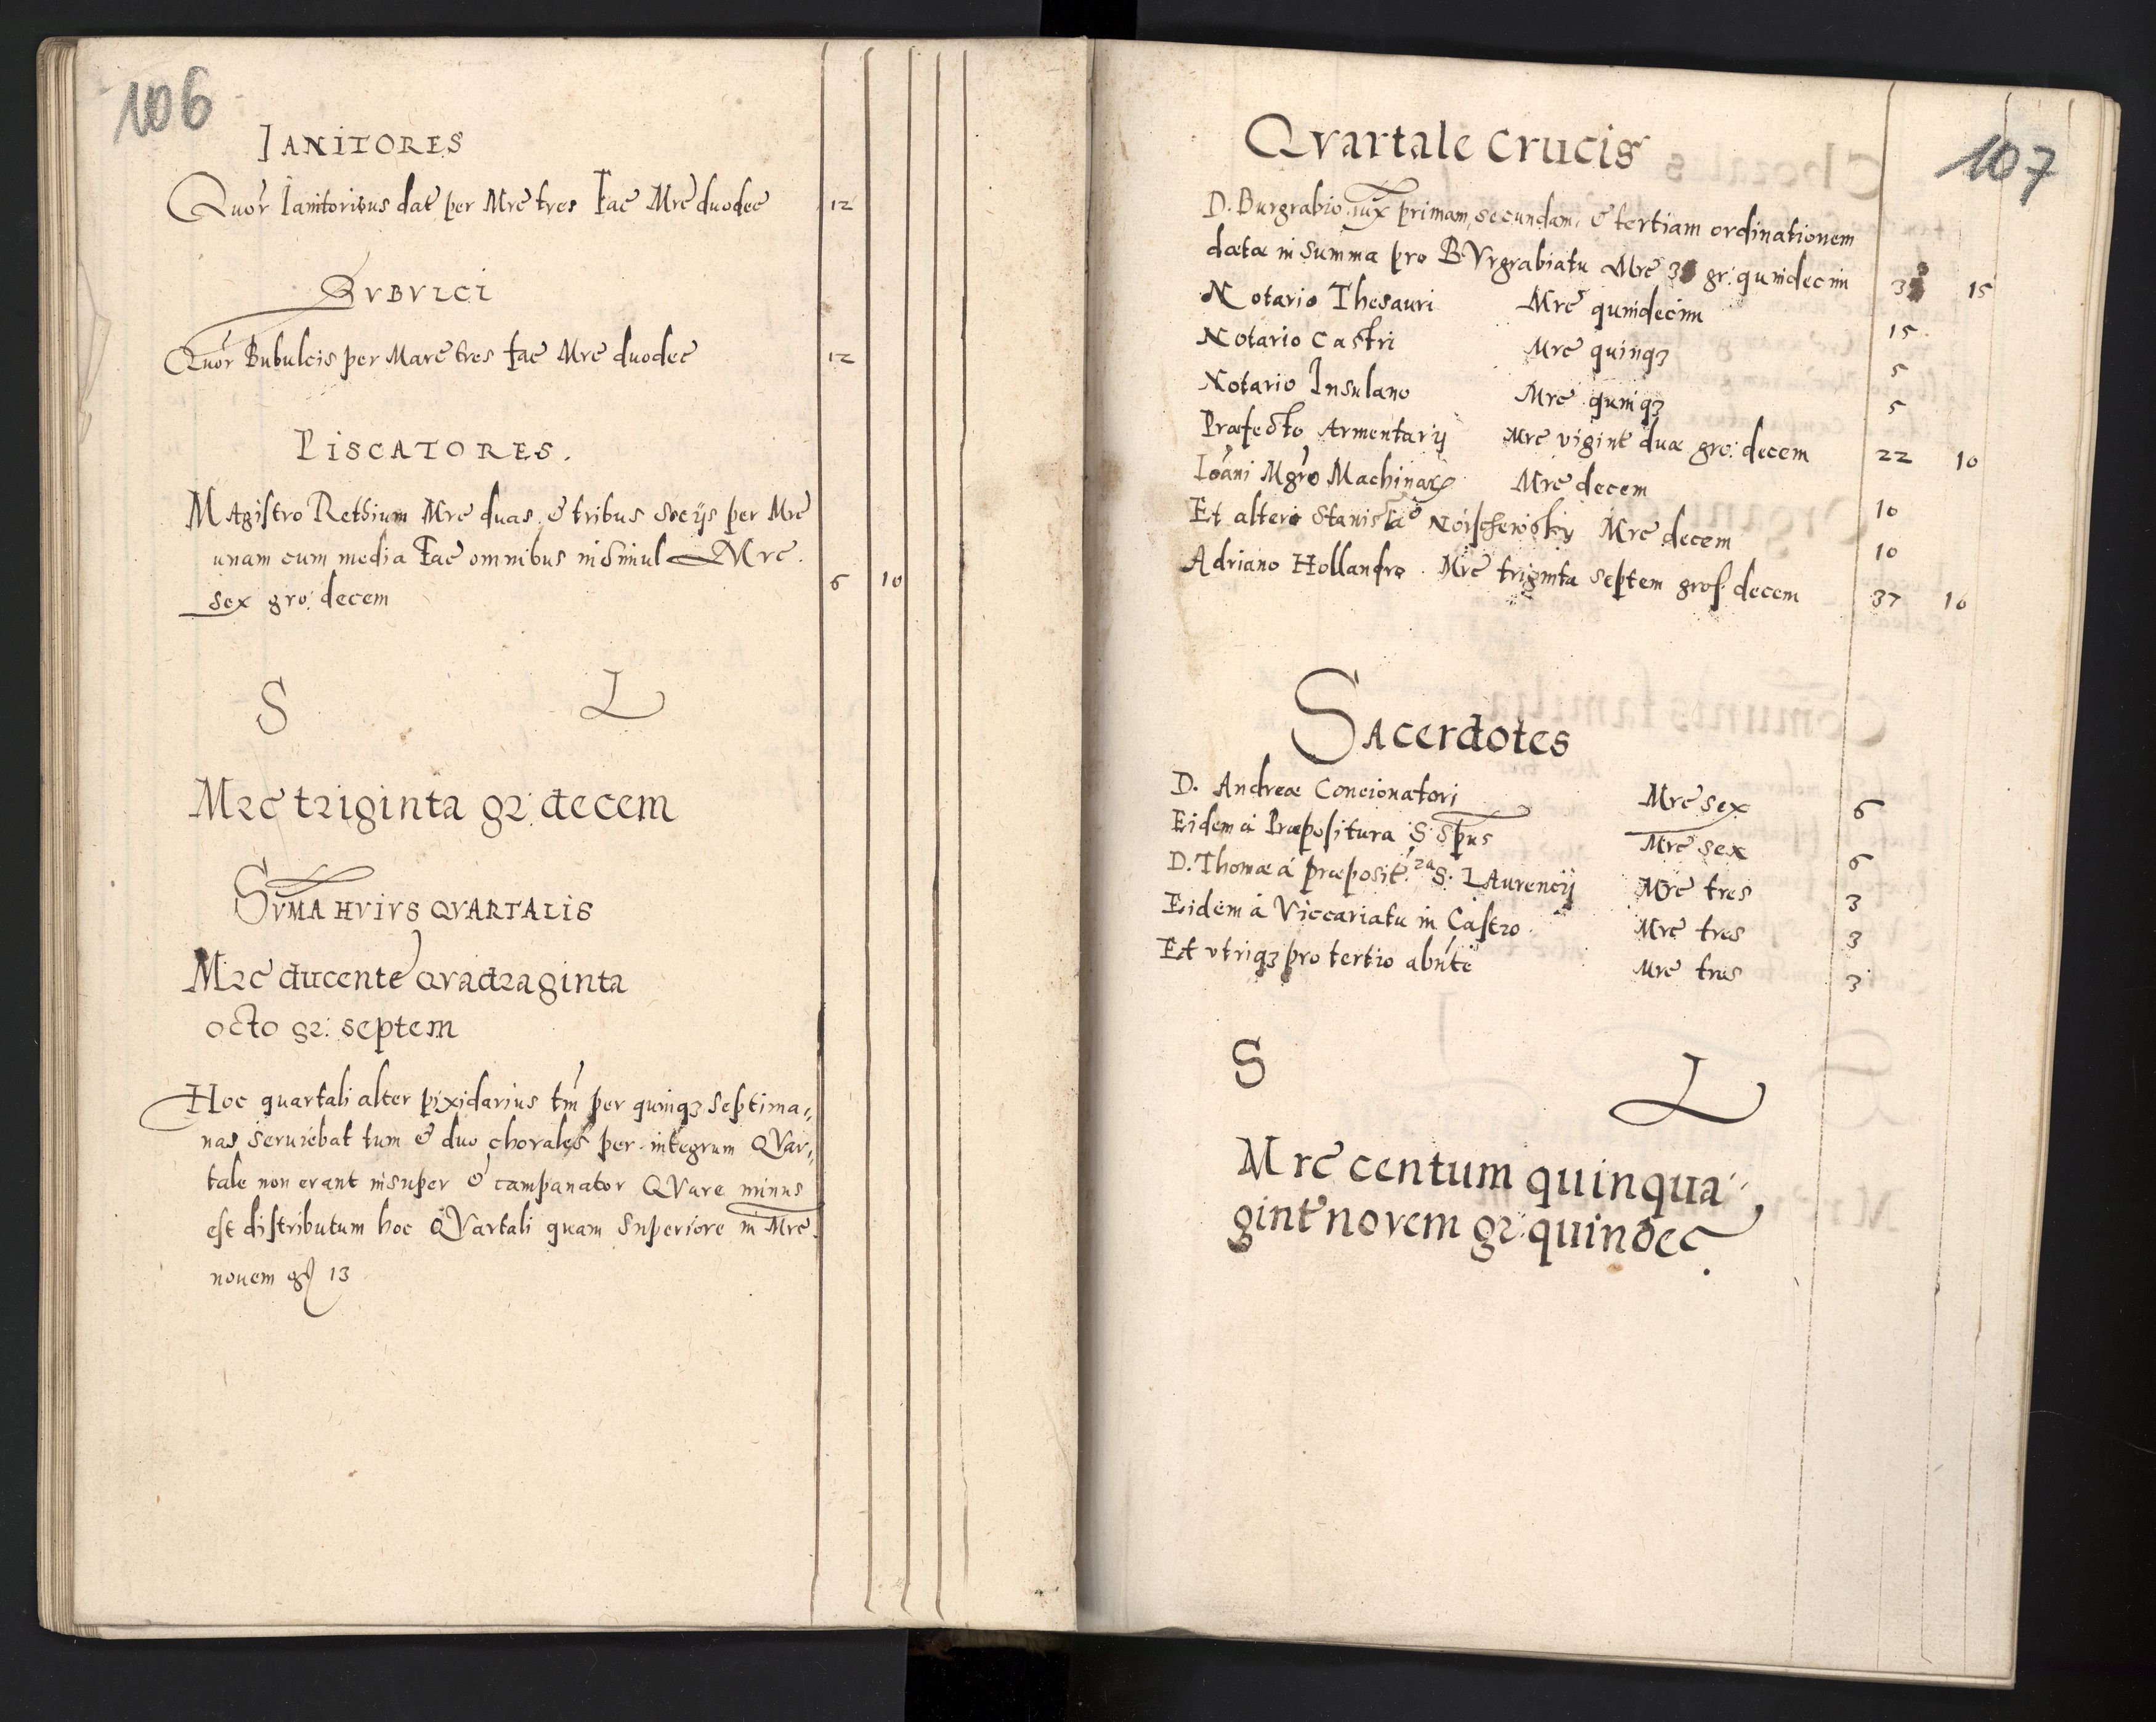 106
IANITORES
Quor Ianitoribus dat per Mrc tres fac Mrc duodec 12
BVBVLCI
Quor Bubulcis per Marc tres fac Mrc duodec 12
PISCATORES.
Magistro Rethium Mrc duas & tribus Socijs per Mrc
unam cum media fac omnibus insimul Mrc.
sex gro: decem 6 10
S L
Mrc triginta gr: decem
SVMA HVIVS QVARTALIS
Mrc ducente Qvadraginta
octo gr: septem
Hoc quartali alter pixidarius tm per quinqȝ septima„
nas seruiebat tum & duo chorales per integrum QVar„
tale non erant insuper & campanator QVare minus
est distributum hoc QVartali quam superiore in Mrc.
nouem gr 13
107
Qvartale Crucis
D. Burgrabio iux primam, secundam, & tertiam ordinationem
datæ in summa pro BVrgrabiatu Mrc gr: quindecim 15
Notario Thesauri Mrc quindecim 15
Notario Castri Mrc quinqȝ 5
Notario Insulano Mrc quinqȝ 5
Præfecto Armentarij Mrc vigint duæ gro: decem 22 10
Ioani Mgro Machinaꝝ Mrc decem 10
Et altero Stanislao Mrc decem 10
Adriano Hollandro. Mrc triginta septem gros decem 37 10
Sacerdotes
D. Andreæ Concionatori Mrc sex 6
Eidem à Præpositura S: Spus Mrc sex 6
D. Thomæ à præposit:ra S. LAurencij Mrc tres 3
Eidem à Viccariatu in Castro. Mrc tres 3
Et vtriqȝ pro tertio abnte Mrc tres 3
S L
Mrc centum quinqua„
gint novem gr: quindec.